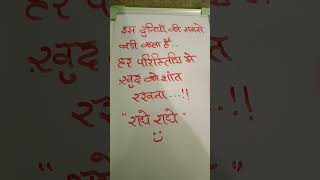 इस दुनियाँ की सबसे
बड़ी कला है...
हर परिस्तिति मे
ख़ुद को शांत
रखना....!!
"राधे राधे"